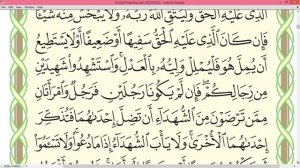 الذي عليه الحق وليتق الله ربه ولا يبخس منه شيئا
فإن كان الذي عليه الحق سفيها أو ضعيفا أو لا يستطيع
أن يمل هو فليملل وليه بالعدل واستشهدوا شهيدين
من رجالكم فإن لم يكونا رجلين فرجل وامرأتان
ممن ترضون من الشهداء أن تضل إحداهما فتذكر
إحداهما الأخرى ولا يأب الشهداء إذا ما دعوا ولا تسئموا